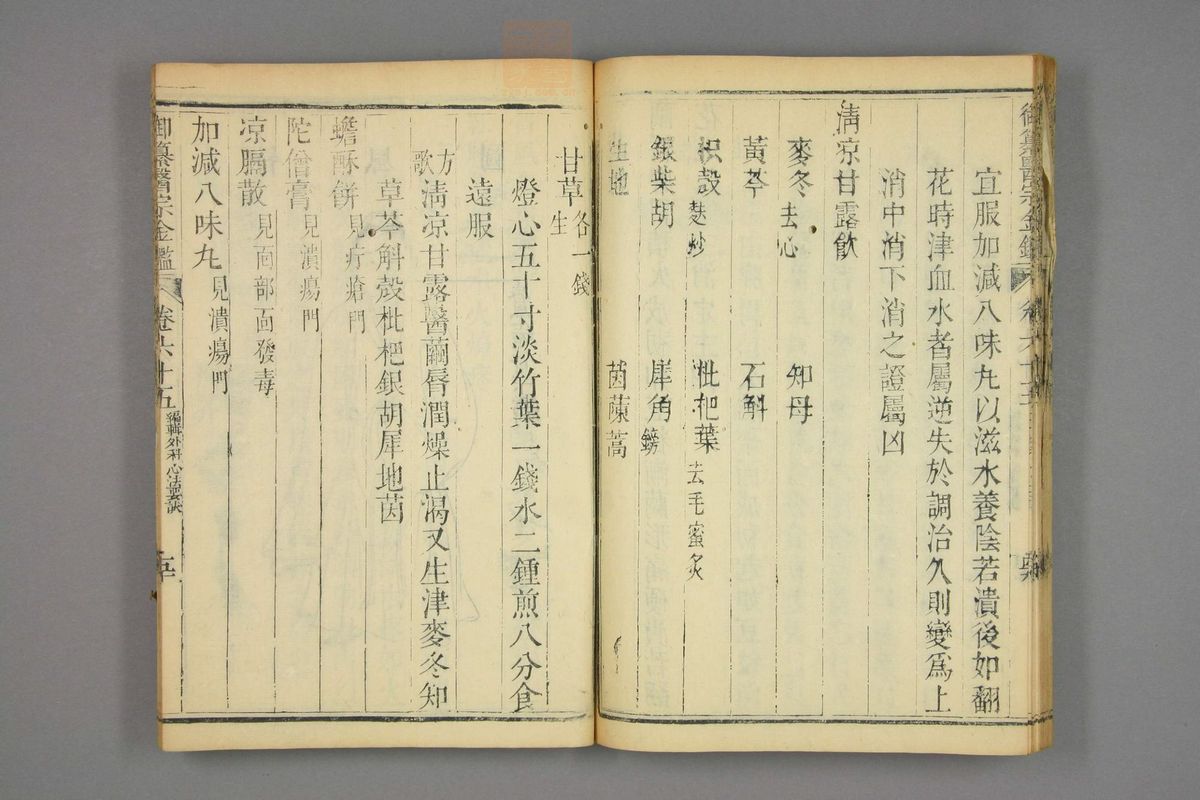 宜服加減八味丸以滋水養陰若潰後如翻
花時津血水者屬逆失於調治久則變爲上
消中消下消之證屬凶
清凉甘露飲
麥冬去心 知母
黃芩 石斛
枳殼麩炒 枇杷葉去毛蜜炙
銀柴胡 犀角鎊
生地 茵蔯蒿
甘草生各一錢
燈心五十寸淡竹葉一錢水二鍾煎八分食
遠服
方歌 清凉甘露醫繭脣潤燥止渴又生津麥冬知
草芩斛殼枇杷銀胡犀地茵
蟾酥餅見疔瘡門
陀僧膏見潰瘍門
凉膈散見面部面發毒
加減八味丸見潰瘍門
御纂醫宗金鑑 卷六十五 編輯外科心法要訣 五十